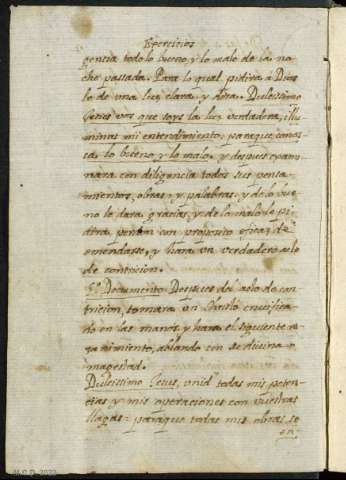 Exercicios
gencia todo lo bueno y lo malo de la no
che passada. Para lo qual pidira á Dios
le de una luz clara. y dira. Dulcissimo
Jesus vos que soys la luz verdadera, illu
minas mi entendimiento, paraque conos
ca, lo bueno, y lo malo, y despues exami
nara con diligencia todos sus pensa
mientos, obras, y palabras. y de lo bue
no le dara gracias, y de lo malo le pi
dira perdon con proposito eficaz de
emendarse, y hara un verdadero acto
de contricion.
Documento Despues del acto de con
tricion, tomara un Christo crucifica
do en las manos, y hara el siguiente ra
zonamiento, ablando con su divina
magestad.
Dulcissimo Jesus, unid todas mis poten
cias y mis operaciones con vuestras
llagas: paraque todas mis obras se
en